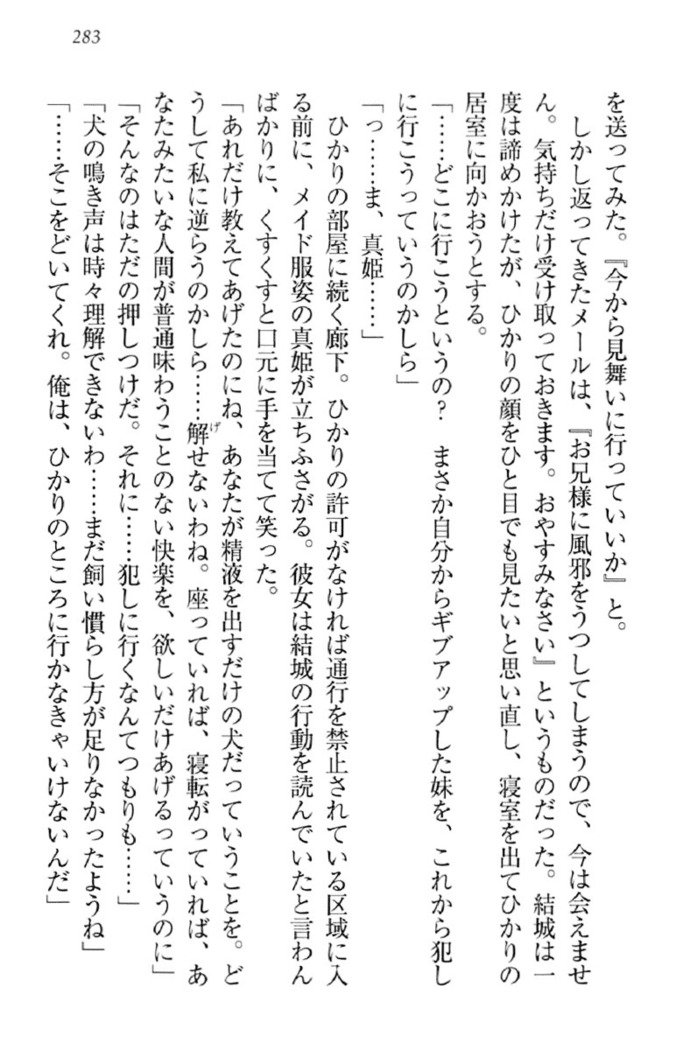 283
を送ってみた。『今から見舞いに行っていいか』と。
しかし返ってきたメールは、『お兄様に風邪をうつしてしまうので、今は会えませ
ん。気持ちだけ受け取っておきます。おやすみなさい』というものだった。結城は一
度は諦めかけたが、ひかりの顔をひと目でも見たいと思い直し、寝室を出てひかりの
居室に向かおうとする。
「……どこに行こうというの？　まさか自分からギブアップした妹を、これから犯し
に行こうっていうのかしら」
「っ……ま、真姫……」
ひかりの部屋に続く廊下。ひかりの許可がなければ通行を禁止されている区域に入
る前に、メイド服姿の真姫が立ちふさがる。彼女は結城の行動を読んでいたと言わん
ばかりに、くすくすと口元に手を当てて笑った。
「あれだけ教えてあげたのにね、あなたが精液を出すだけの犬だっていうことを。ど
うして私に逆らうのかしら……解せないわね。座っていれば、寝転がっていれば、あ
なたみたいな人間が普通味わうことのない快楽を、欲しいだけあげるっていうのに」
「そんなのはただの押しつけだ。それに……犯しに行くなんてつもりも……」
「犬の鳴き声は時々理解できないわ……まだ飼い慣らし方が足りなかったようね」
「……そこをどいてくれ。俺は、ひかりのところに行かなきゃいけないんだ」